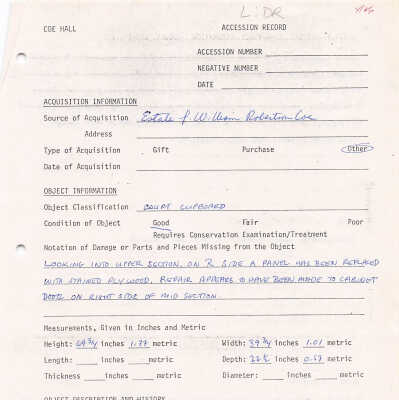 L: DR
COE HALL ACCESSION RECORD
ACCESSION NUMBER
NEGATIVE NUMBER
DATE
ACQUISITION INFORMATION
Source of Acquisition Estate of William Robertson Coe
Address
Type of Acquisition Gift Purchase Other
Date of Acquisition
OBJECT INFORMATION
Object Classification COURT CUPBOARD
Condition of Object Good Fair Poor
Requires Conservation Examination/Treatment
Notation of Damage or Parts and Pieces Missing from the Object
LOOKING INTO UPPER SECTION, ON R SIDE A PANEL HAS BEEN REPLACED
WITH STAINED PLYWOOD. REPAIR APPEARS TO HAVE BEEN MADE TO CABINET
DOOR ON RIGHT SIDE OF MID SECTION.
Measurements, Given in Inches and Metric
Height: 69 3/4 inches 1.77 metric Width: 39 3/4 inches 1.01 metric
Length: inches metric Depth: inches 0.57 metric
Thickness inches metric Diameter: inches metric
OBJECT DESCRIPTION AND HISTORY